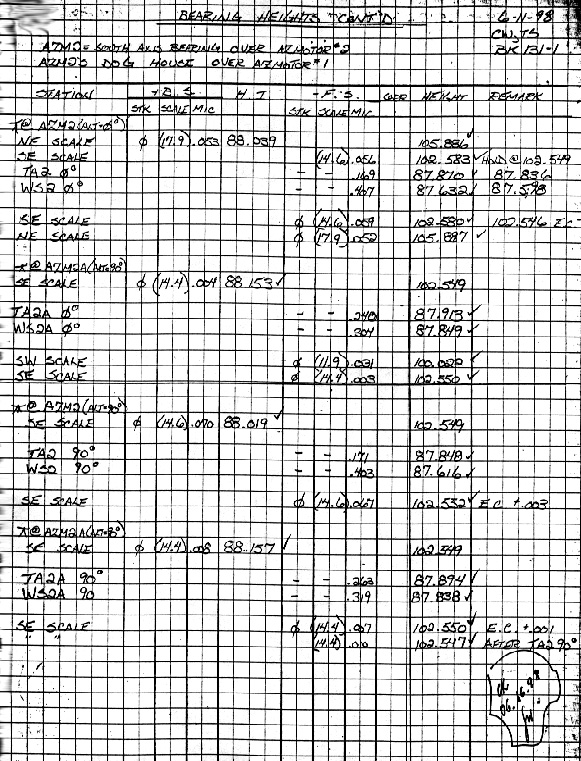 BEARING HEIGHTS CONT'D 6-11-98
CW, TS
AZM2= SOUTH AXIS BEARING OVER AZMOTOR #2 BK 131-1
DOG HOUSE OVER AZMOTOR #1
STATION + B.S. H.I - F.S. HEIGHT REMARK
STK SCALE MIC STK SCALE MIC
⊼@ AZM2(ALT=0°)
NE SCALE ϕ (17.9) .053 88.039 105.886 ✓
SE SCALE (14.6) .056 102.583 ✓ HOLD @ 102.549
TA2 0° - - .169 87.870 ✓ 87.836
WS2 0° - - .407 87.632 ✓ 87.598
SE SCALE ϕ (14.6) .059 102.580 ✓ 102.546 E.C.
NE SCALE ϕ (17.9) .052 105.887 ✓
⊼@ AZM2A(ALT=90°)
SE SCALE ϕ (14.4) .004 88.153 ✓ 102.549
TA2A 0° - - .240 87.913 ✓
WS2A 0° - - .304 87.849 ✓
SW SCALE ϕ (11.9) .031 100.022 ✓
SE SCALE ϕ (14.4) .003 102.550 ✓
⊼@ AZM2(ALT=90°)
SE SCALE ϕ (14.6) .070 88.019 ✓ 102.549
TA2 90° - - .171 87.848 ✓
WS2 90° - - .403 87.616 ✓
SE SCALE ϕ (14.6) .067 102.552 ✓ E.C +.003
⊼@ AZM2A(ALT=90°)
SE SCALE ϕ (14.4) .008 88.157 ✓ 102.549
TA2A 90° - - .263 87.894 ✓
WS2A 90 - - .319 87.838 ✓
SE SCALE ϕ (14.4) .007 102.550 ✓ E.C. +.001
" " (14.4) .010 102.547 ✓ AFTER TA2 90°
ok
06.16.98